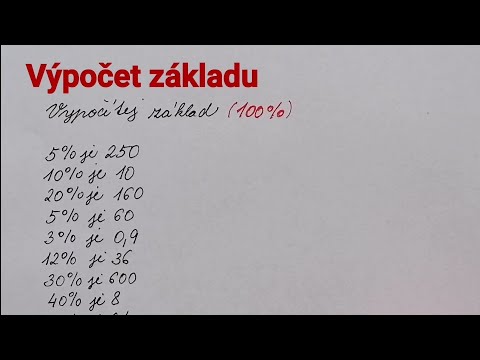 Výpočet základu
Vypočítej základ (100%)
5% je 250
10% je 10
20% je 160
5% je 60
3% je 0,9
12% je 36
30% je 600
40% je 8